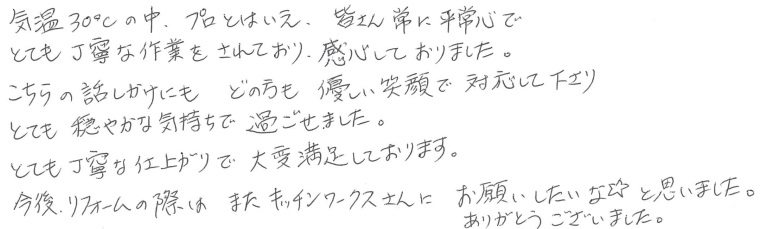 気温30℃の中、プロとはいえ、皆さん常に平常心で
とても丁寧な作業をされており、感心しておりました。
こちらの話しかけにも どの方も 優しい笑顔で 対応して下さり
とても 穏やかな気持ちで 過ごせました。
とても丁寧な仕上がりで 大変満足しております。
今後、リフォームの際は また キッチンワークスさんに お願いしたいな☆と思いました。
ありがとうございました。